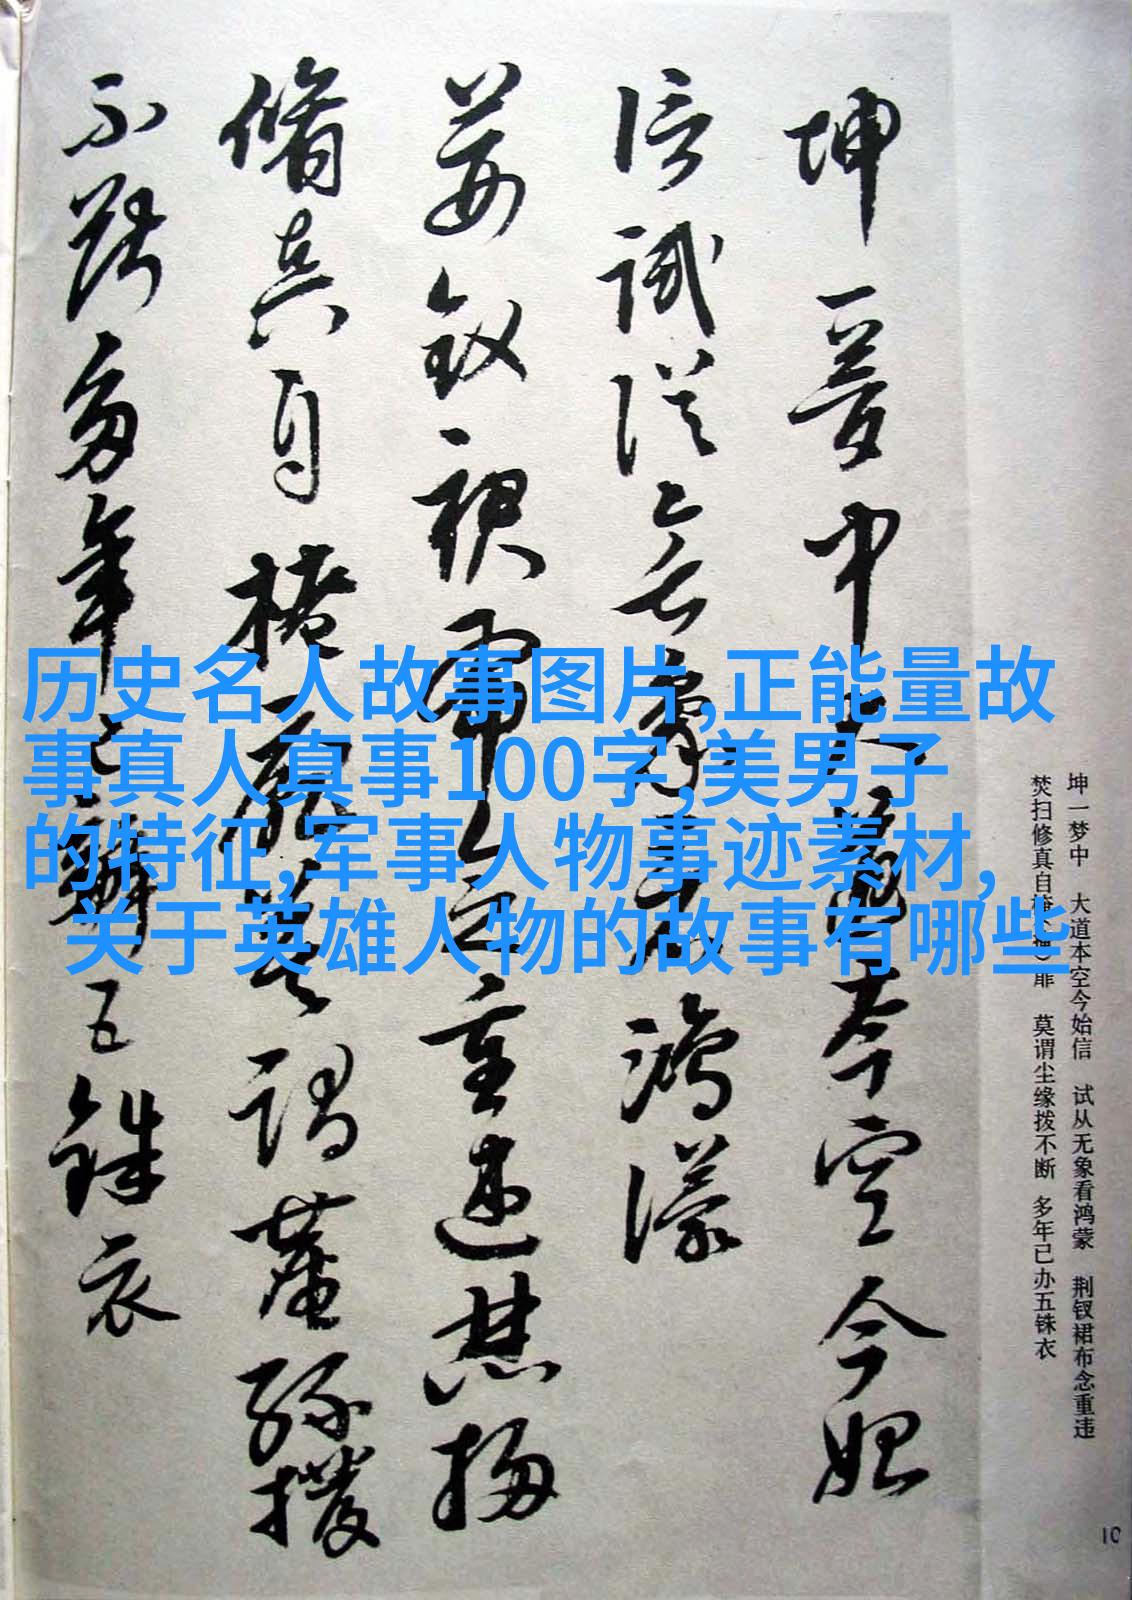 坤一梦中 大道本空今始信 试从无象看鸿蒙 荆钗裙布念重违
焚扫修真自扉 莫谓尘缘拨不断 多年已办五铢衣
坤一夢中大道本空今始
信試從無象看鴻濛
荊釵裙布念重違焚掃
脩真自掩扉莫謂塵緣撥
不斷多年已辦五銖衣
历史名人故事图片,正能量故
事真人真事100字,美男子
的特征,军事人物事迹素材,
关于英雄人物的故事有哪些
10